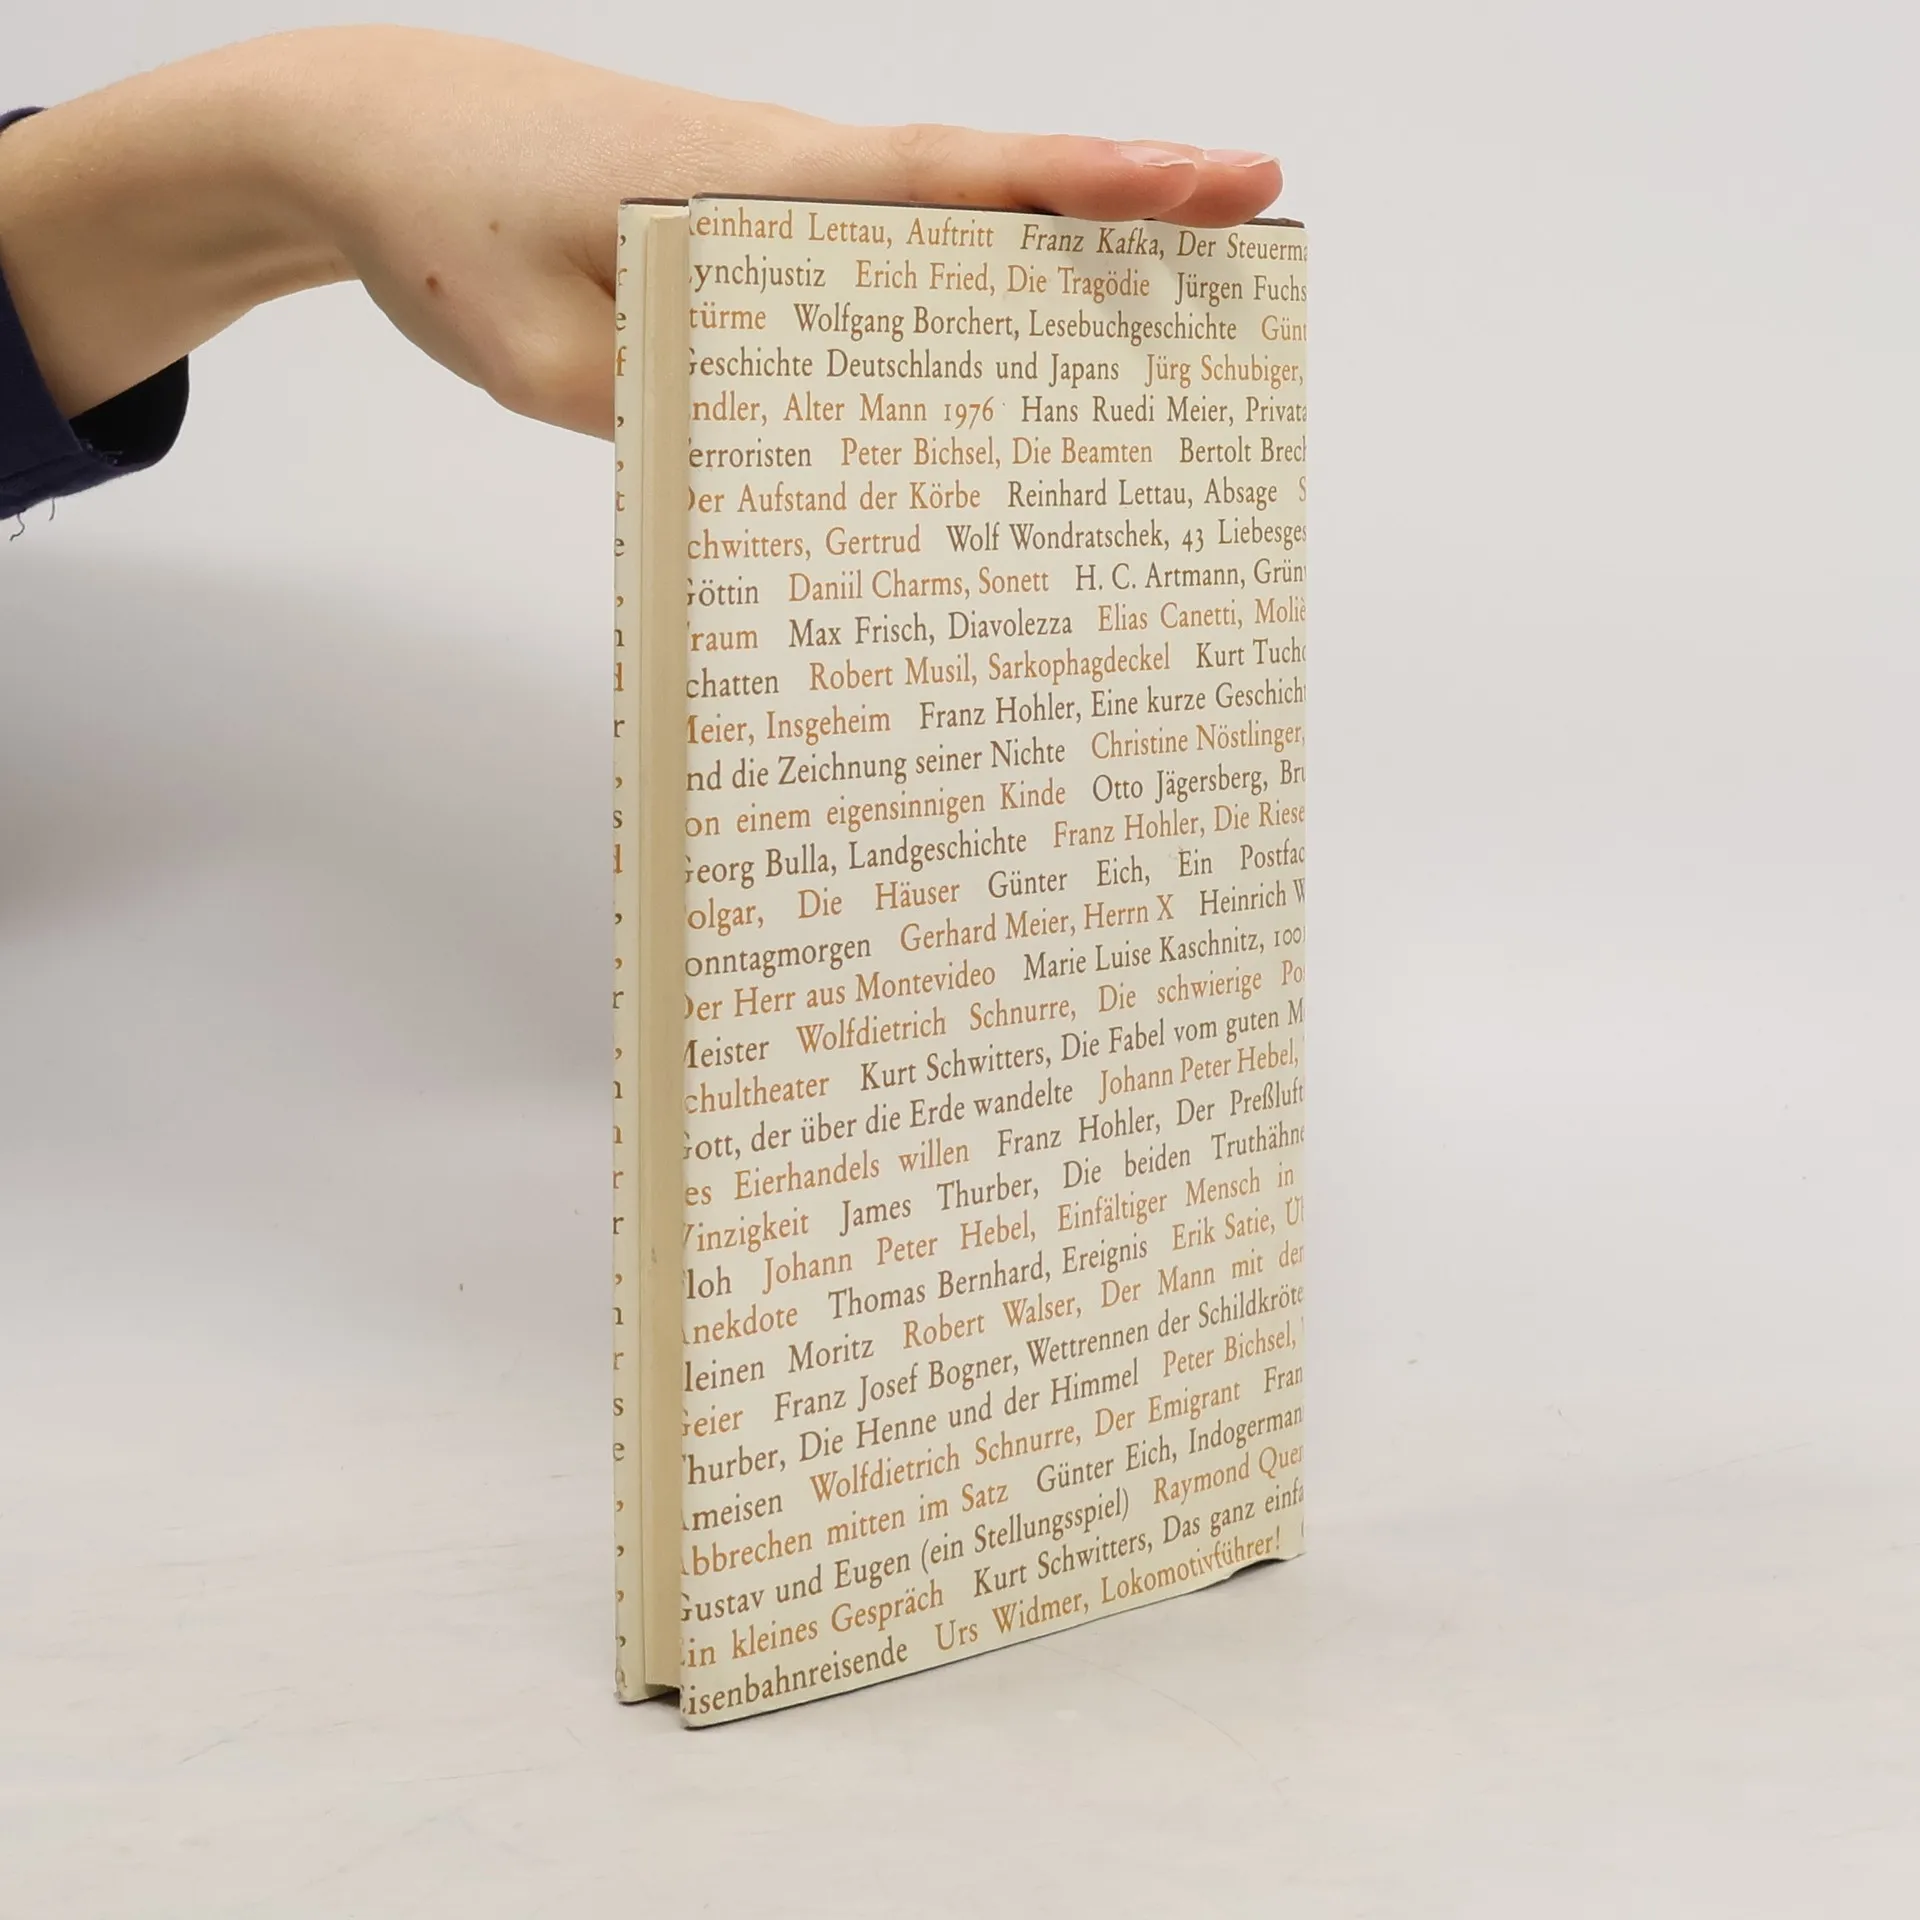 einhard Lettau, Auftritt Franz Kafka, Der Steuerma
ynchjustiz Erich Fried, Die Tragödie Jürgen Fuchs
türme Wolfgang Borchert, Lesebuchgeschichte Günt
eschichte Deutschlands und Japans Jürg Schubiger,
ndler, Alter Mann 1976 Hans Ruedi Meier, Privata
erroristen Peter Bichsel, Die Beamten Bertolt Brech
Der Aufstand der Körbe Reinhard Lettau, Absage S
chwitters, Gertrud Wolf Wondratschek, 43 Liebesges
Göttin Daniil Charms, Sonett H. C. Artmann, Grün
raum Max Frisch, Diavolezza Elias Canetti, Moliè
chatten Robert Musil, Sarkophagdeckel Kurt Tucho
Meier, Insgeheim Franz Hohler, Eine kurze Geschicht
nd die Zeichnung seiner Nichte Christine Nöstlinger,
on einem eigensinnigen Kinde Otto Jägersberg, Bru
Georg Bulla, Landgeschichte Franz Hohler, Die Riese
olgar, Die Häuser Günter Eich, Ein Postfac
onntagmorgen Gerhard Meier, Herrn X Heinrich W
Der Herr aus Montevideo Marie Luise Kaschnitz, 1001
Meister Wolfdietrich Schnurre, Die schwierige Po
chultheater Kurt Schwitters, Die Fabel vom guten M
Gott, der über die Erde wandelte Johann Peter Hebel,
es Eierhandels willen Franz Hohler, Der Preßluft
Winzigkeit James Thurber, Die beiden Truthähne
loh Johann Peter Hebel, Einfältiger Mensch in
nekdote Thomas Bernhard, Ereignis Erik Satie, Üb
leinen Moritz Robert Walser, Der Mann mit der
Geier Franz Josef Bogner, Wettrennen der Schildkröte
hurber, Die Henne und der Himmel Peter Bichsel,
Ameisen Wolfdietrich Schnurre, Der Emigrant Fran
Abbrechen mitten im Satz Günter Eich, Indogerman
Gustav und Eugen (ein Stellungsspiel) Raymond Quen
Ein kleines Gespräch Kurt Schwitters, Das ganz einfa
Eisenbahnreisende Urs Widmer, Lokomotivführer!